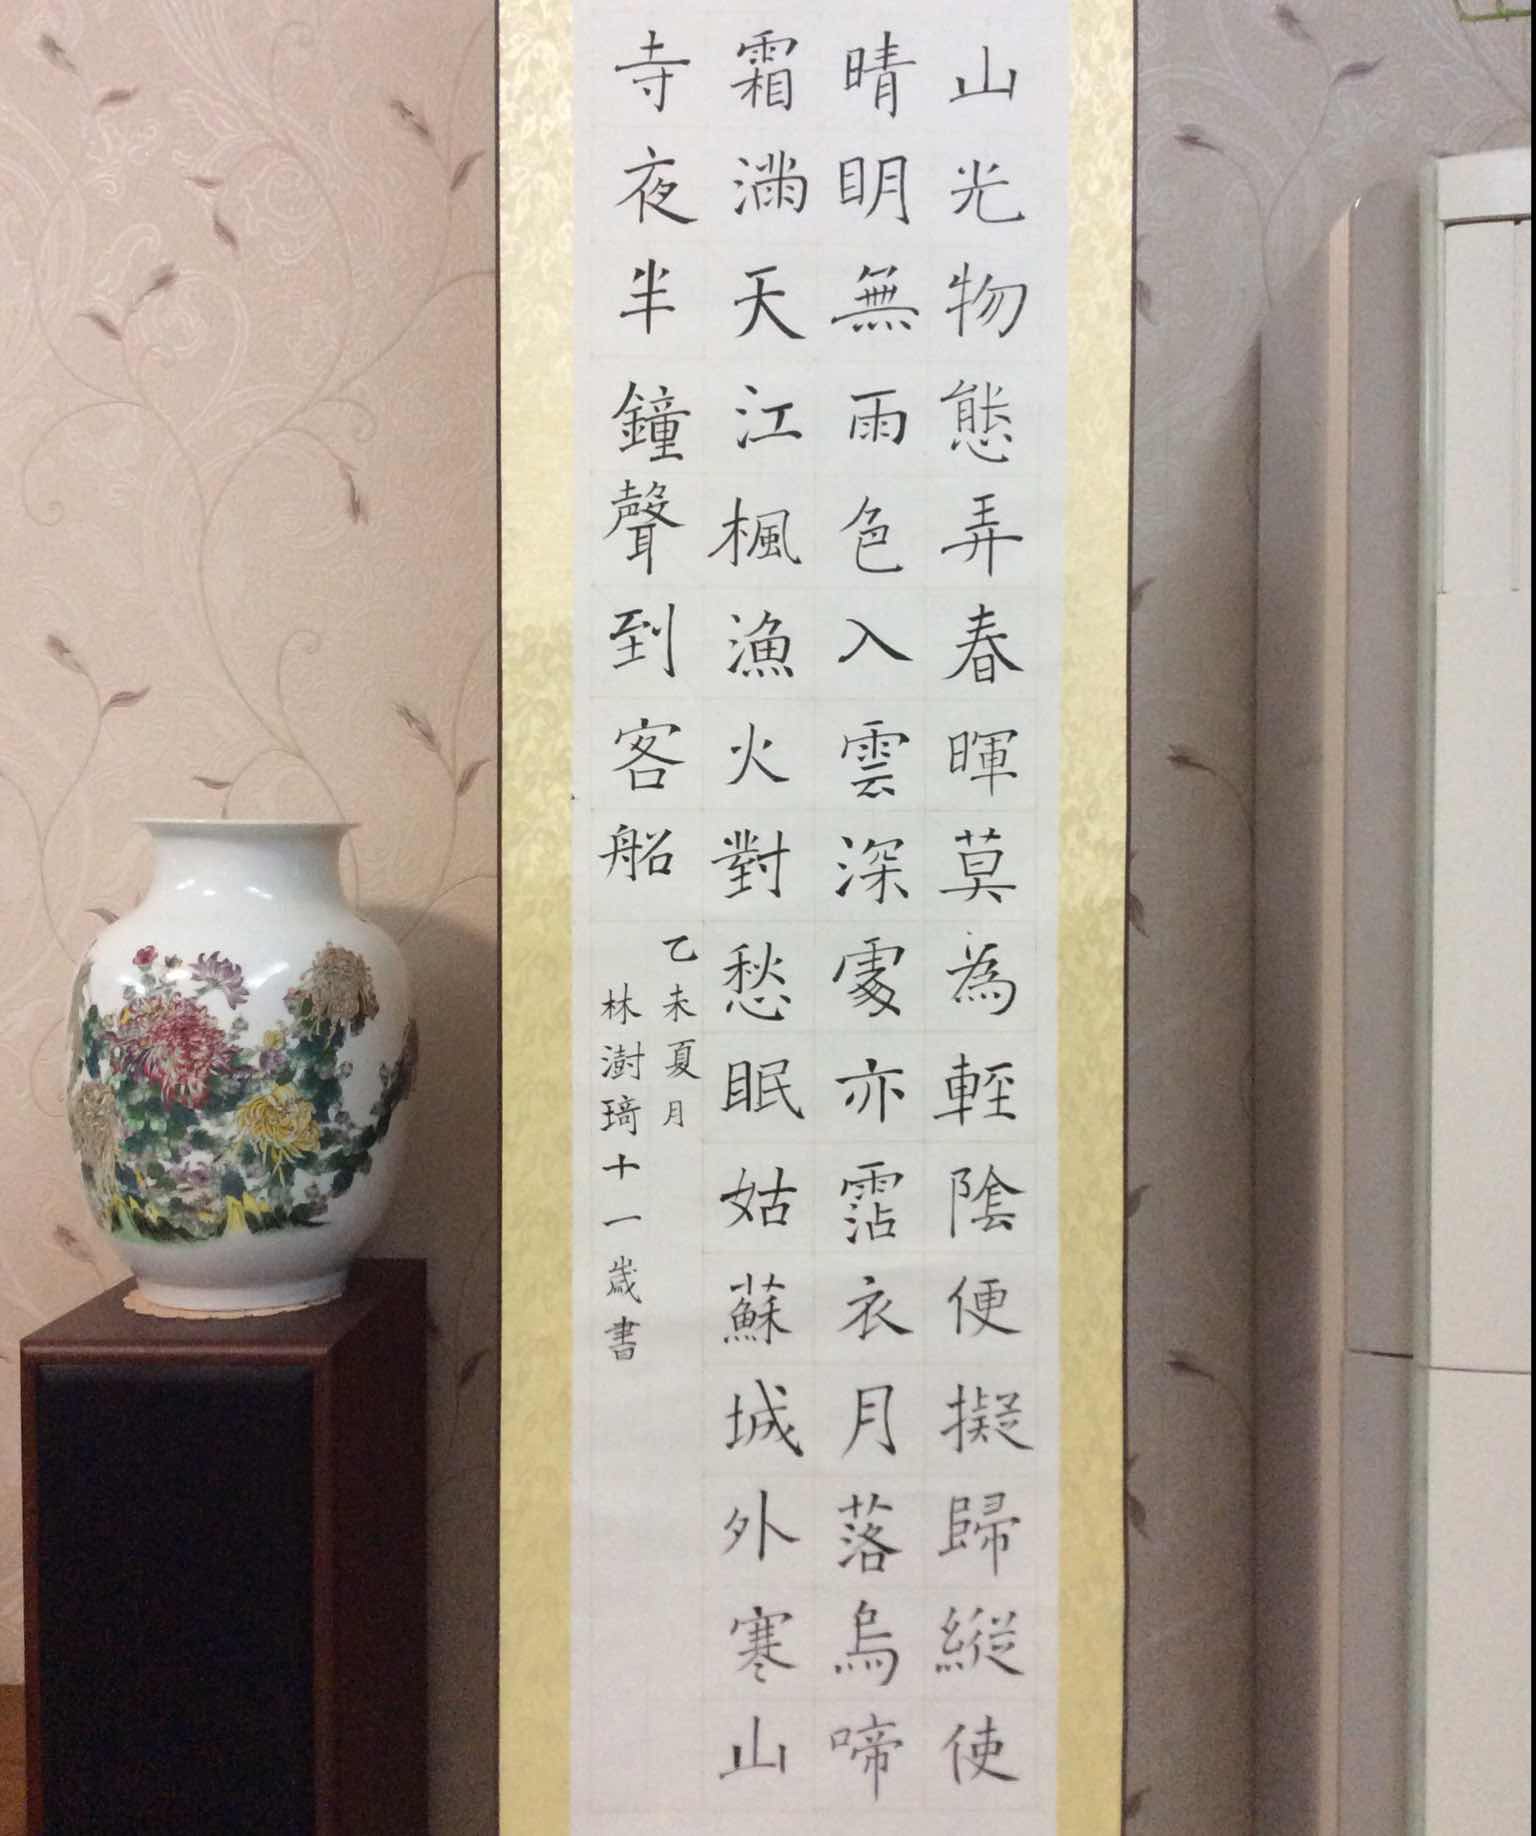 山光物態弄春暉莫為輕陰便擬歸縱使
晴明無雨色入雲深處亦霑衣月落烏啼
霜滿天江楓漁火對愁眠姑蘇城外寒山
寺夜半鐘聲到客船
乙未夏月
林澍琦十一歲書